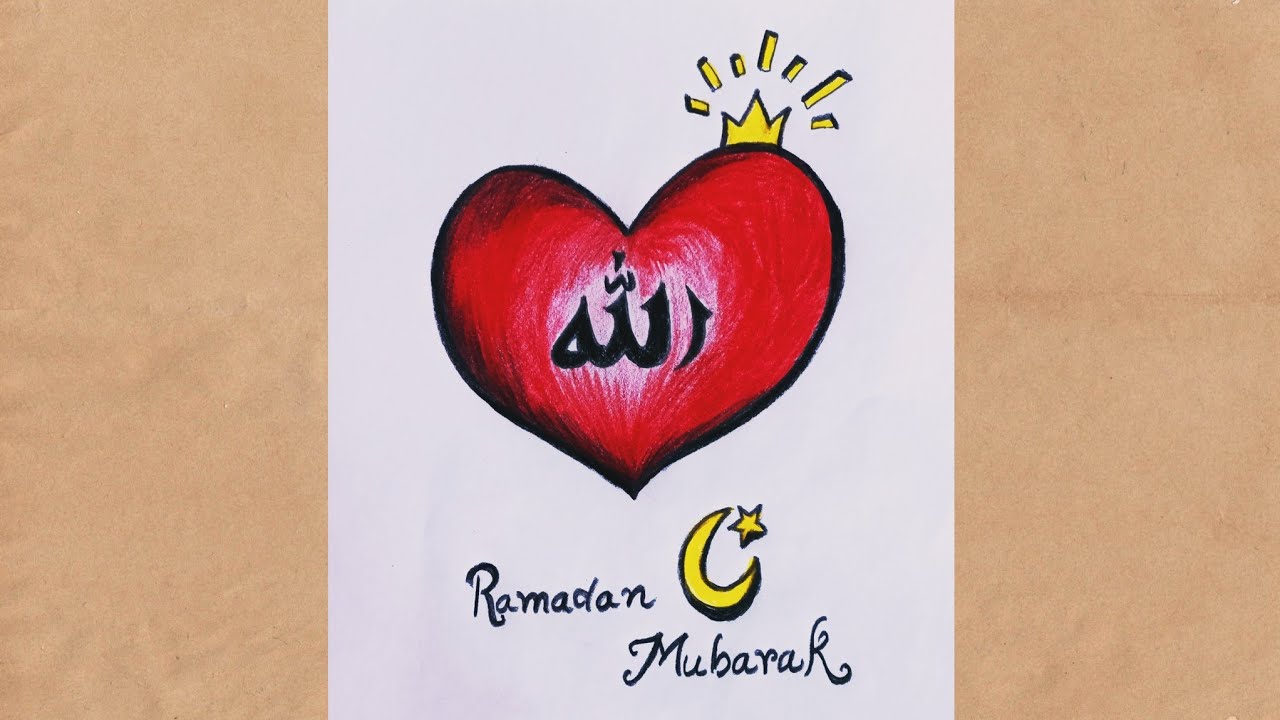 الله
Ramadan
Mubarak